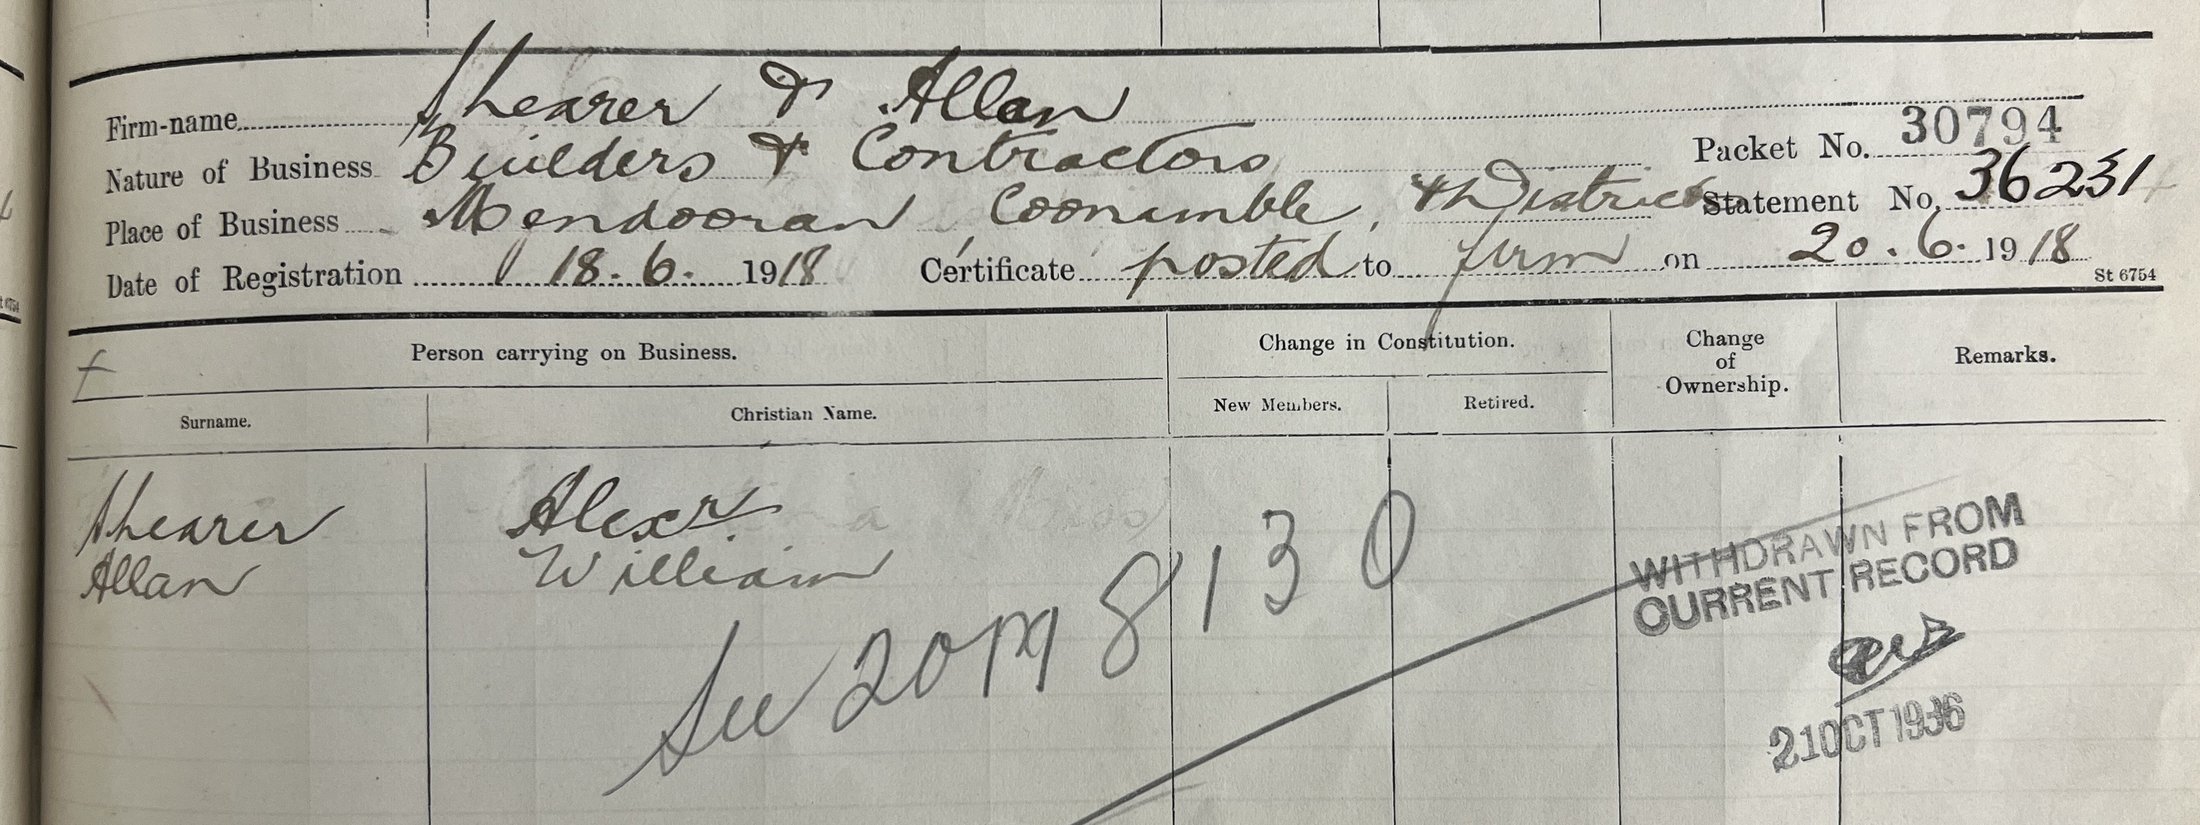 Firm-name Shearer & Allan
Packet No. 30794
Nature of Business Builders & Contractors
Statement No. 36231
Place of Business Mendooran, Coonamble, & District
Date of Registration 18.6.1918 Certificate posted to firm on 20.6.1918
St 6754
Person carrying on Business. Change in Constitution. Change of Ownership. Remarks.
Surname. Christian Name. New Members. Retired.
Shearer Alexr
Allan William
See 20M 8130
WITHDRAWN FROM
CURRENT RECORD
21 OCT 1936